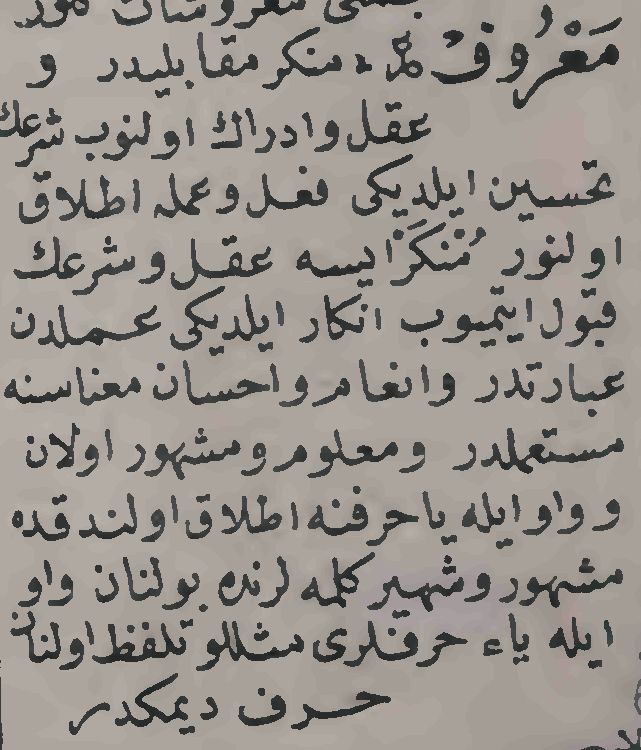 مَعْرُوفْ منكر مقابليدر و
عقل وادراك اولنوب شرعك
تحسين ايلديكى فعل وعمله اطلاق
اولنور مُنْكَرْ ايسه عقل وشرعك
قبول ايتميوب انكار ايلديكى عملدن
عبارتدر وانعام واحسان معناسنه
مستعملدر ومعلوم ومشهور اولان
و واو ايله ياحرفنه اطلاق اولندقده
مشهور وشهير كلمه لرنده بولنان واو
ايله ياء حرفلرى مثللو تلفظ اولنان
حرف ديمكدر